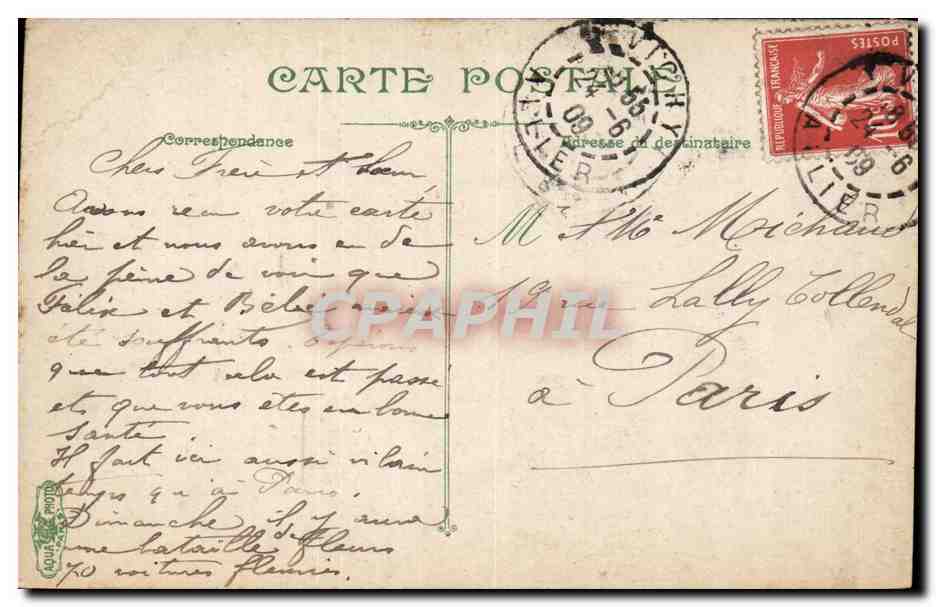 CARTE POSTALE
Correspondance
Adresse du destinataire
Chers Frère et Sœur
Avons reçu votre carte
hier et nous avons eu de
la peine de voir que
Félix et Bébé aient
été souffrants. Espérons
que tout cela est passé
et que vous etes en bonne
santé
Il fait ici aussi vilain
temps qu'à Paris.
Dimanche il y aura
une bataille de fleurs
70 voitures fleuries.
M et Me Michaud
19 rue Lally Tollendal
à Paris
VICHY
24 -6
09
ALLIER
REPUBLIQUE FRANÇAISE
POSTES
10
VICHY
24 -6
09
ALLIER
AQUA PHOTO
PARIS
CPAPHIL